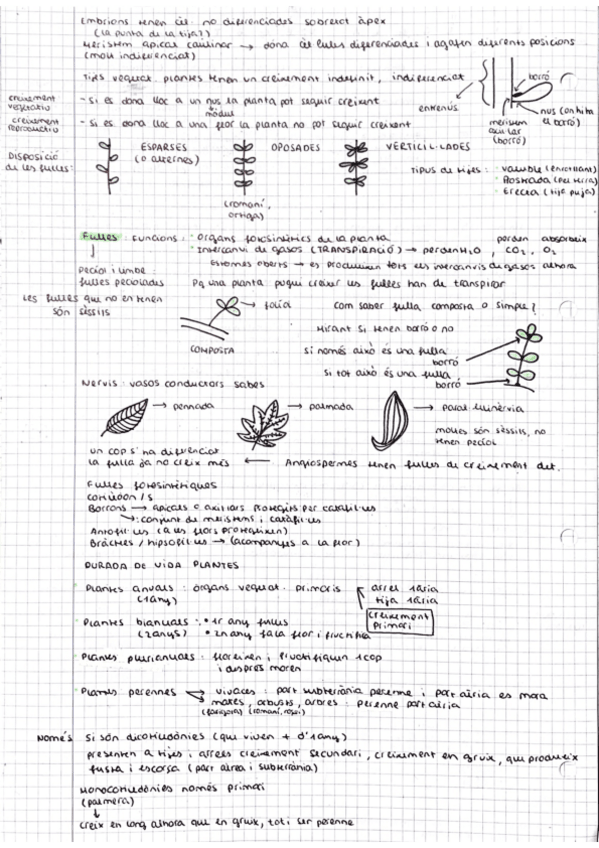 Embrions tenen cèl. no diferenciades sobretot àpex
(la punta de la tija?)
Meristem apical caulinar → dona cèl·lules diferenciades i agafen diferents posicions
(molt indiferenciat)
Tips vegetat. plantes tenen un creixement indefinit, indiferenciat
creixement vegetatiu
- Si es dona lloc a un nus la planta pot seguir creixent
mòdul
creixement reproductiu
- Si es dona lloc a una flor la planta no pot seguir creixent
entrenús
borró
nus (on hi ha el borró)
meristem axil·lar (borró)
DISPOSICIÓ de les fulles:
ESPARSES (o alternes)
OPOSADES
(romaní, ortiga)
VERTICIL·LADES
Tipus de tiges: · voluble (enrotllant)
· Postrada (pel terra)
· Erecta (tija puja)
Fulles: Funcions: · Òrgans fotosintètics de la planta
· Intercanvi de gasos (TRANSPIRACIÓ) → perden H2O, CO2, O2
perden absorbeix
Estomes oberts → es produeixen tots els intercanvis de gasos alhora
Pecíol i limbe: fulles peciolades
Pq una planta pugui créixer les fulles han de transpirar
Les fulles que no en tenen són sèssils
folíol
COMPOSTA
Com saber fulla composta o simple?
Mirant si tenen borró o no
si només això és una fulla
borró
si tot això és una fulla
borró
Nervis: vasos conductors sabes
→ pennada
→ palmada
→ paral·lelinèrvia
moltes són sèssils, no tenen pecíol
un cop s'ha diferenciat la fulla ja no creix més ← Angiospermes tenen fulles de creixement det.
Fulles fotosintètiques
Cotilèdon/s
Borrons → apicals o axil·lars protegits per catàfil·les
→: conjunt de meristems i catàfil·les
Antofil·les (a les flors protegeixen)
Bràctees / hipsofil·les → (acompanyes a la flor)
DURADA DE VIDA PLANTES
Plantes anuals: òrgans vegetat. primaris
(1 any)
arrel 1ària
tija 1ària
creixement primari
Plantes bianuals: • 1r any fulles
(2 anys) • 2n any fa la flor i fructifica
Plantes plurianuals: floreixen i fructifiquen 1 cop
i després moren
Plantes perennes → vivaces: part subterrània perenne i part aèria es mora
mates, arbusts, arbres: perenne part aèria
Només si són dicotiledònies (que viuen + d'1 any)
presenten a tiges i arrels creixement secundari, creixement en gruix, que produeix
fusta i escorça (part aèrea i subterrània)
Monocotiledònies només primari
(palmera)
↓
creix en long alhora que en gruix, tot i ser perenne